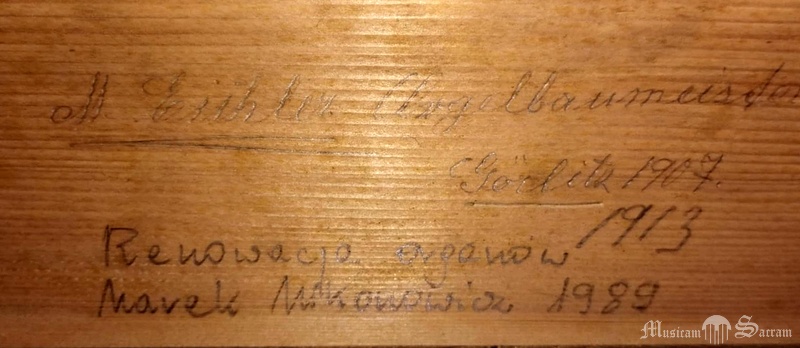 M. Eichler Orgelbaumeister
Görlitz 1907.
1913
Renowacja organów
Marek 1989
Musicam Sacram